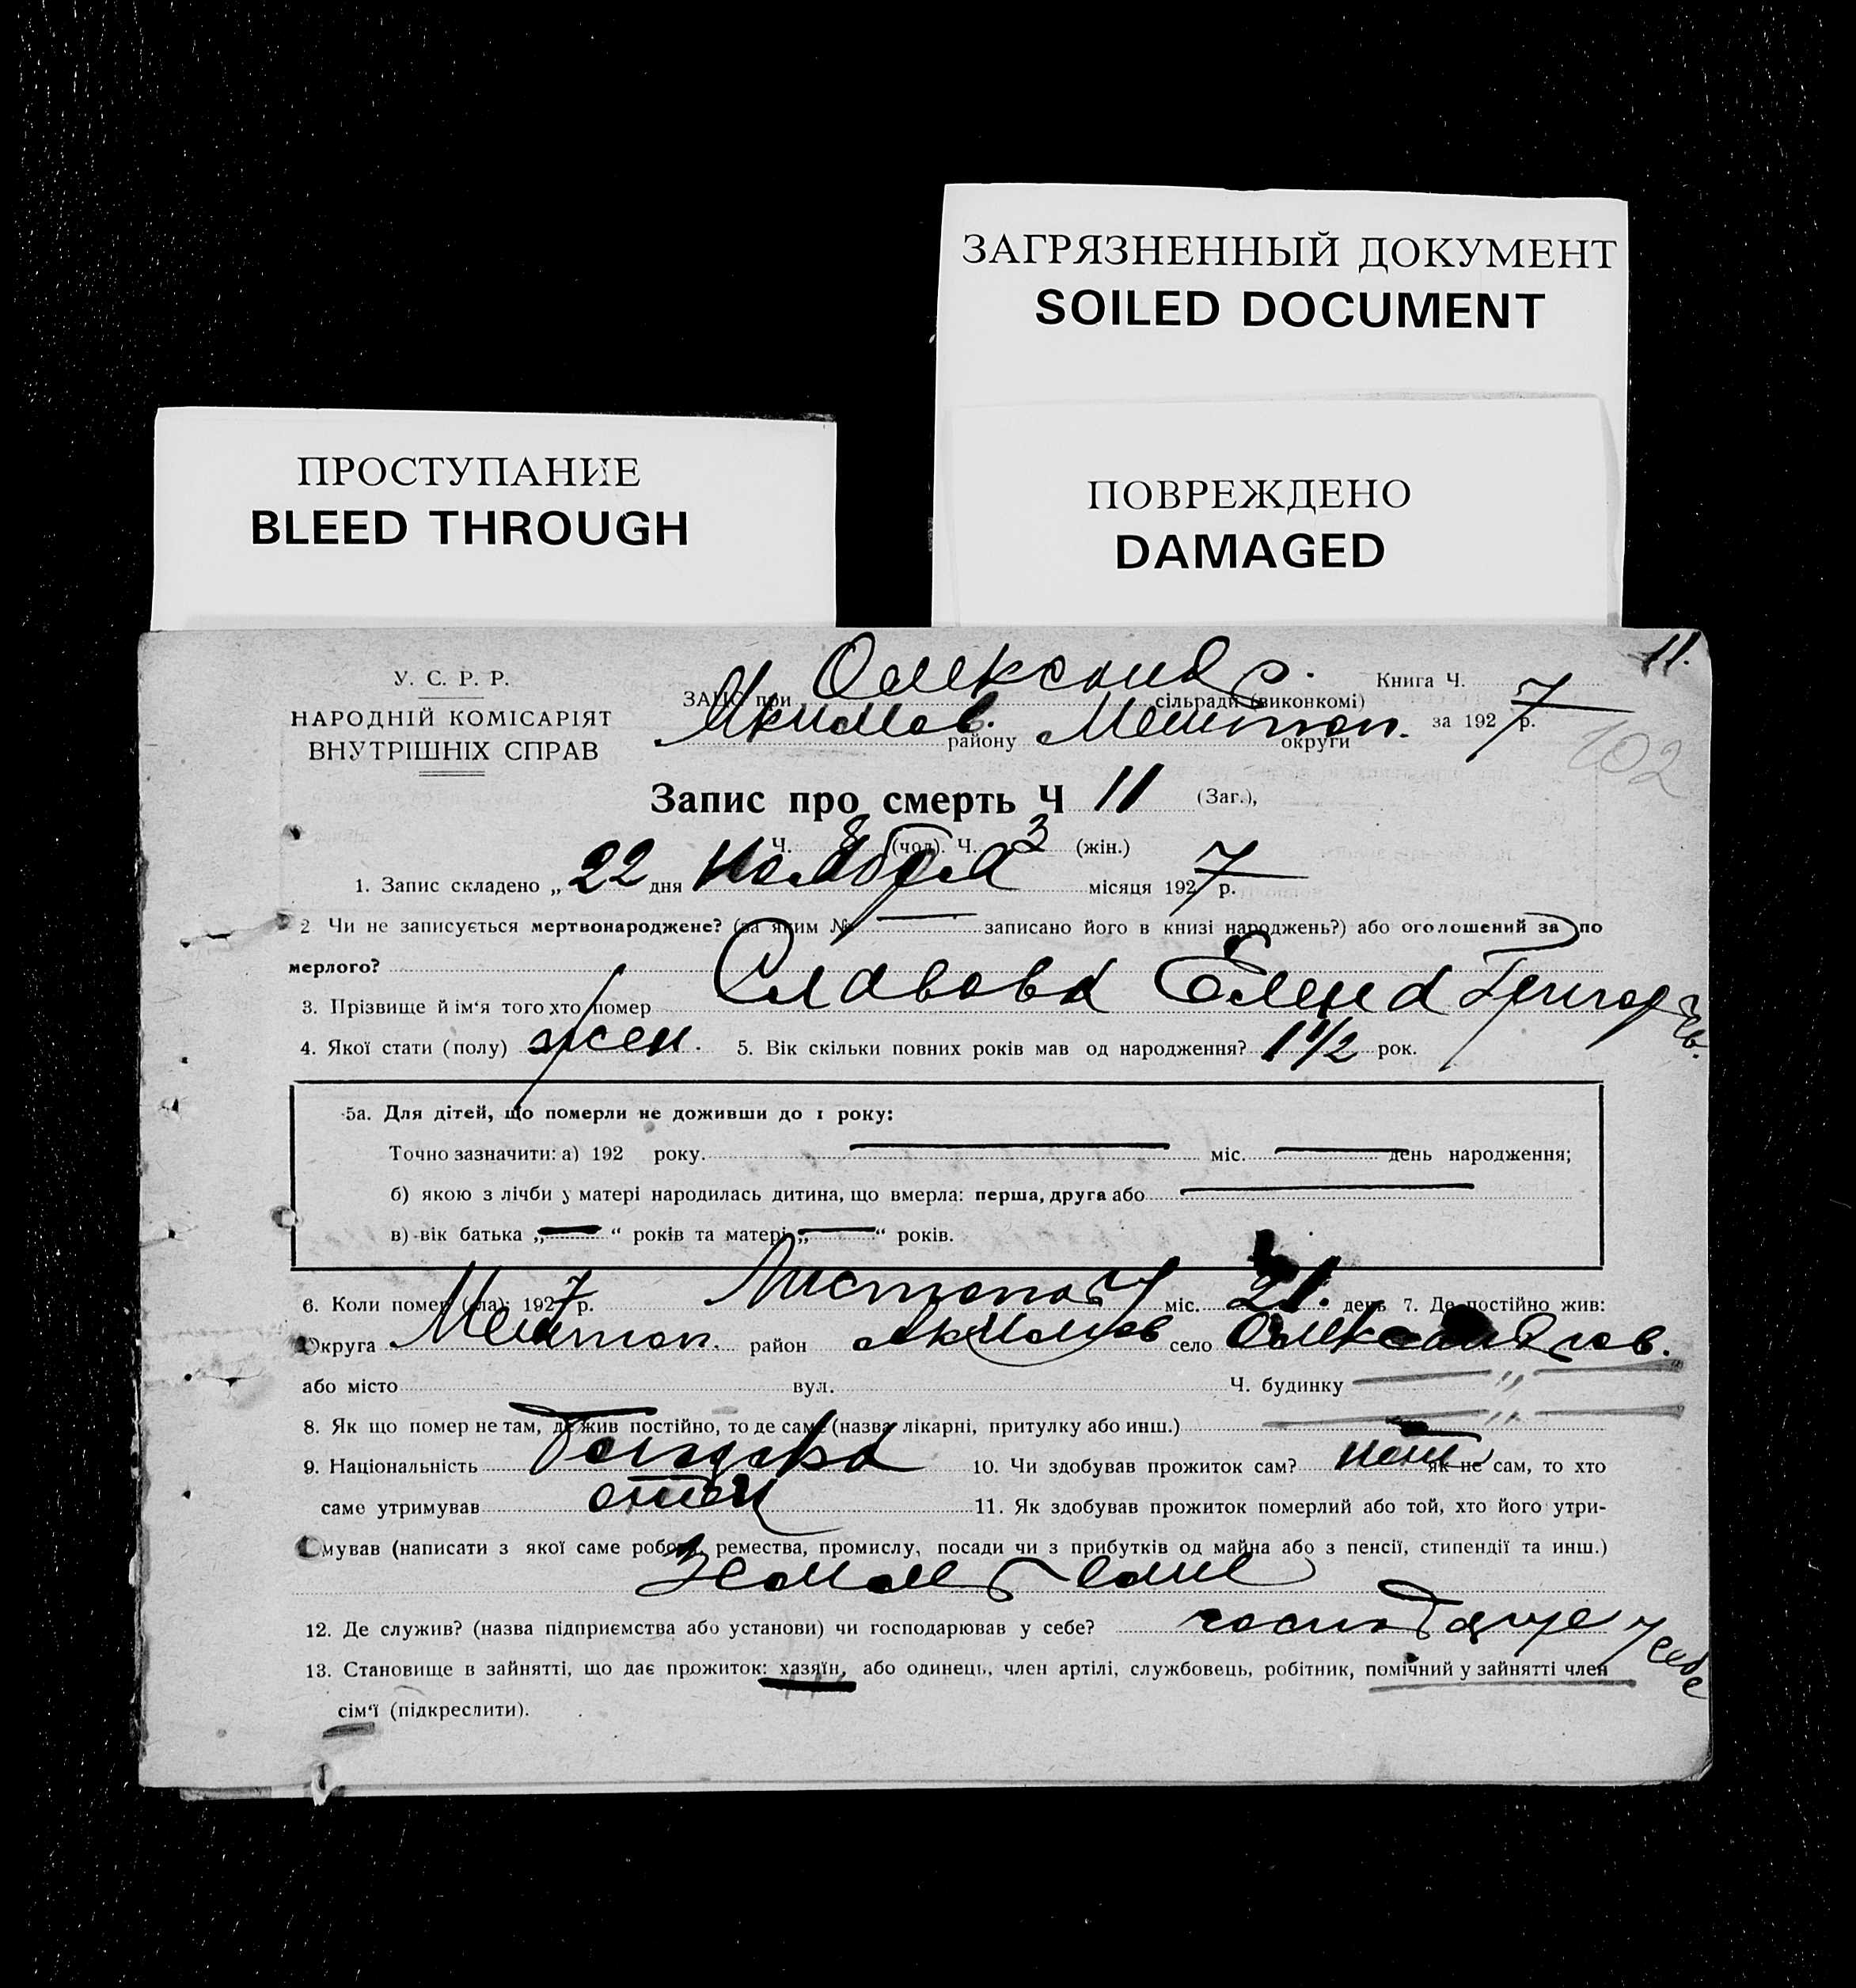 ЗАГРЯЗНЕННЫЙ ДОКУМЕНТ
SOILED DOCUMENT
ПРОСТУПАНИЕ
BLEED THROUGH
ПОВРЕЖДЕНО
DAMAGED
11.
У. С. Р. Р.
НАРОДНІЙ КОМІСАРІЯТ
ВНУТРІШНІХ СПРАВ
ЗАГС при Олександр. сільради (виконкомі) Книга Ч.
Якимов. району Мелитоп. округи за 1927 р.
102
Запис про смерть Ч 11 (Заг.),
Ч. 8 (чол). Ч. 3 (жін.)
1. Запис складено „ 22 дня Ноября місяця 1927 р.
2 Чи не записується мертвонароджене? (за яким № — записано його в книзі народжень?) або оголошений за по
мерлого?
3. Прізвище й ім‘я того хто помер Славова Елена Григорьев.
4. Якої стати (полу) жен. 5. Вік скільки повних років мав од народження? 1 1/2 рок.
5а. Для дітей, що померли не доживши до 1 року:
Точно зазначити: а) 192 року. — міс. — день народження;
б) якою з лічби у матері народилась дитина, що вмерла: перша, друга або —
в) вік батька „ — “ років та матері „ — “ років.
6. Коли помер (ла): 1927 р. Листопаду міс. 21. день 7. Де постійно жив:
Округа Мелитоп. район Якимов село Олександров.
або місто вул. Ч. будинку — „ —
8. Як що помер не там, де жив постійно, то де саме (назва лікарні, притулку або инш.) — „ —
9. Національність Болгарка 10. Чи здобував прожиток сам? нет як не сам, то хто
саме утримував отец 11. Як здобував прожиток померлий або той, хто його утри-
мував (написати з якої саме роботи, ремества, промислу, посади чи з прибутків од майна або з пенсії, стипендії та инш.)
12. Де служив? (назва підприємства або установи) чи господарював у себе? господарує у себе
13. Становище в зайнятті, що дає прожиток: хазяїн, або одинець, член артілі, службовець, робітник, помічний у зайнятті член
сім‘ї (підкреслити).